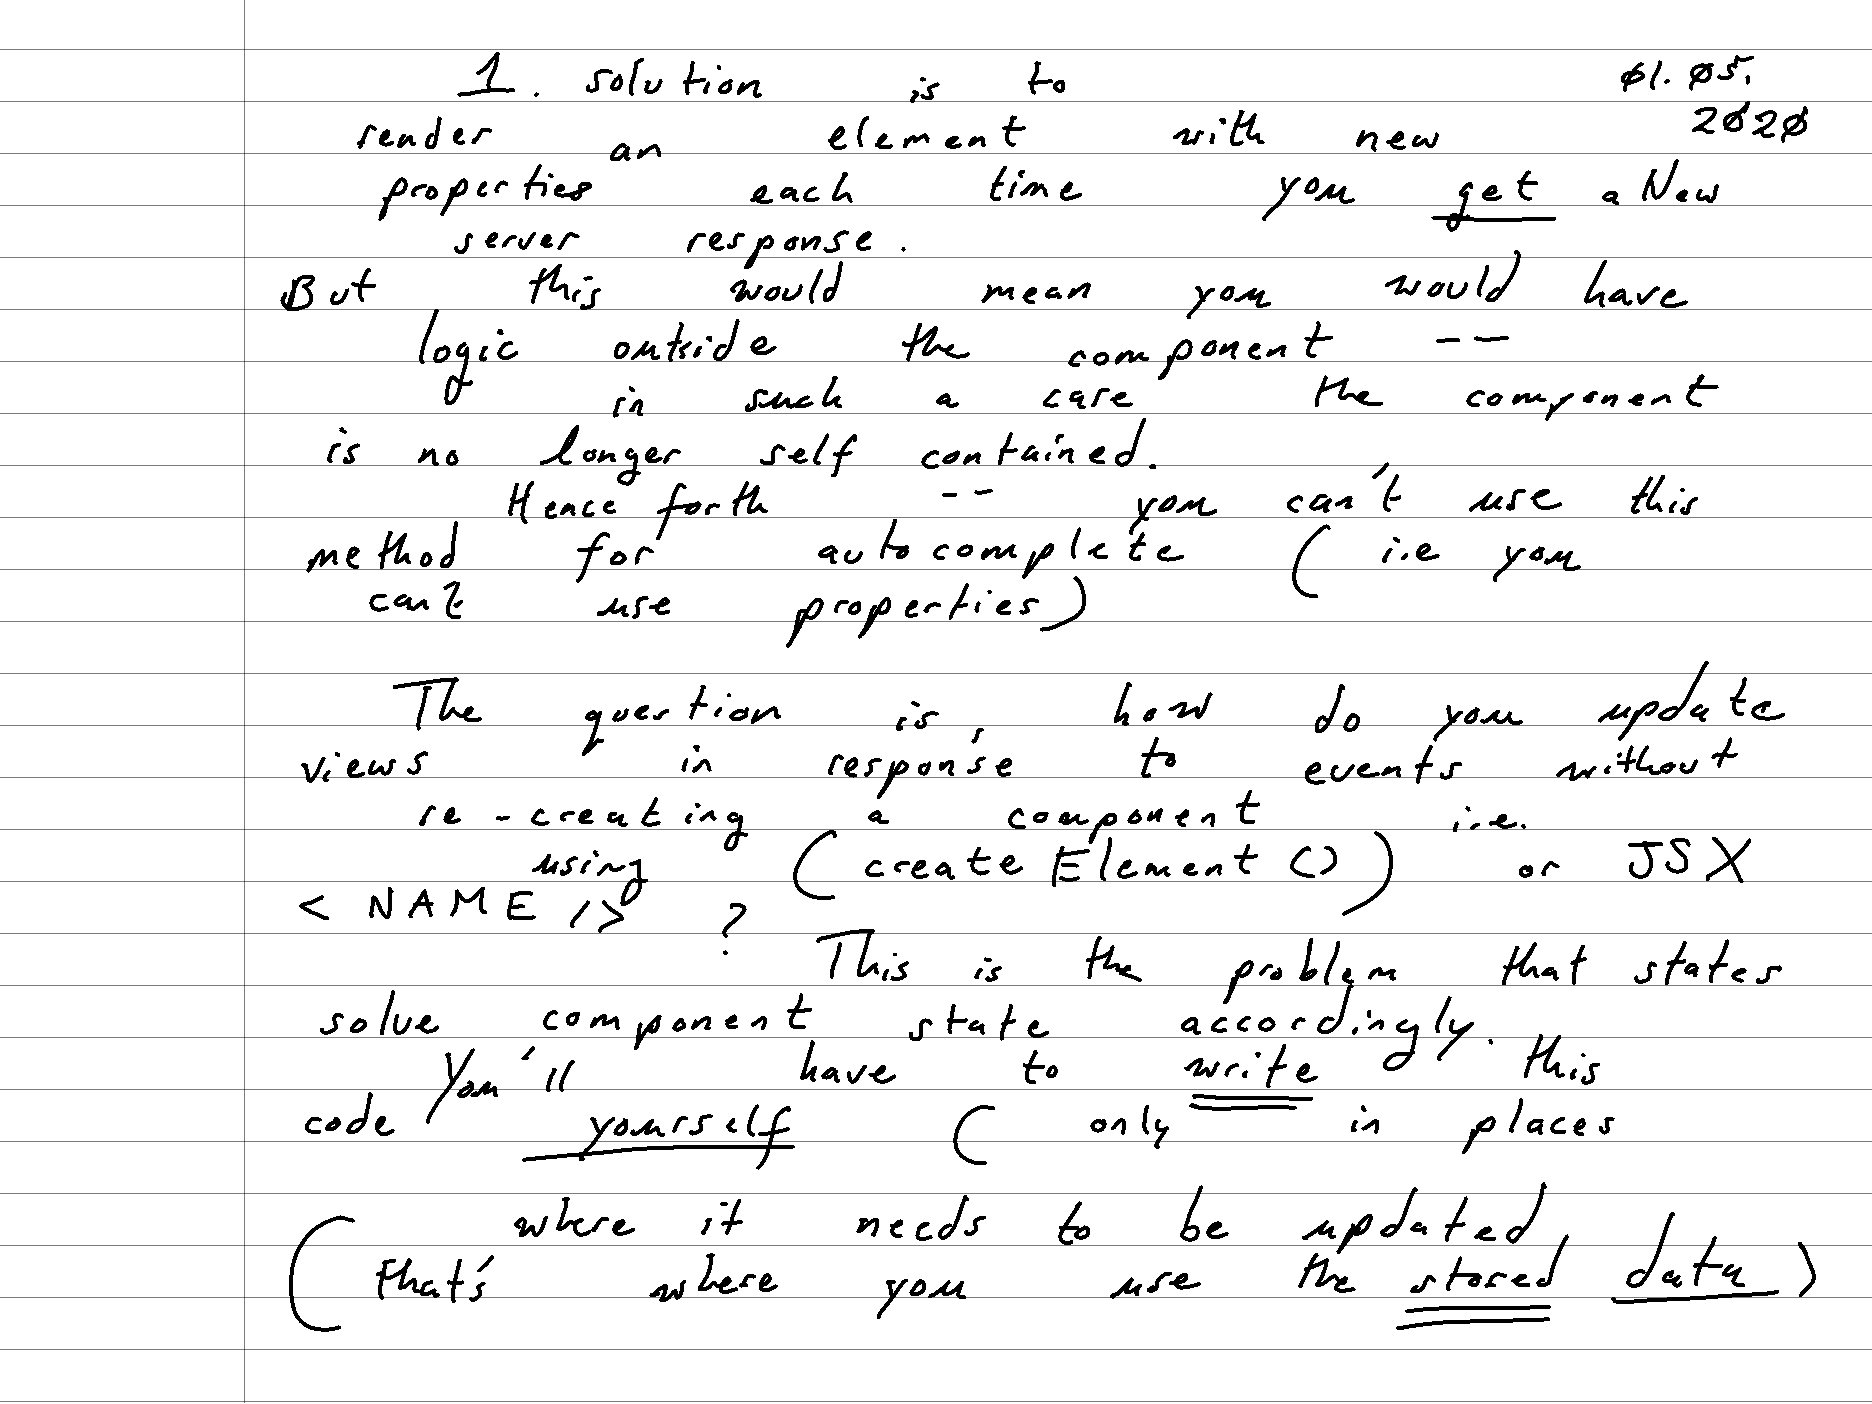 1. solution is to 01.05.
2020
render an element with new
properties each time you get a New
server response.
But this would mean you would have
logic outside the component --
in such a case the component
is no longer self contained.
Hence forth -- you can't use this
method for autocomplete ( i.e you
can't use properties)
The question is, how do you update
views in response to events without
re-creating a component i.e.
using (create Element ()) or JSX
< NAME /> ?
This is the problem that states
solve component state accordingly.
You'll have to write this
code yourself ( only in places
where it needs to be updated
(that's where you use the stored data)